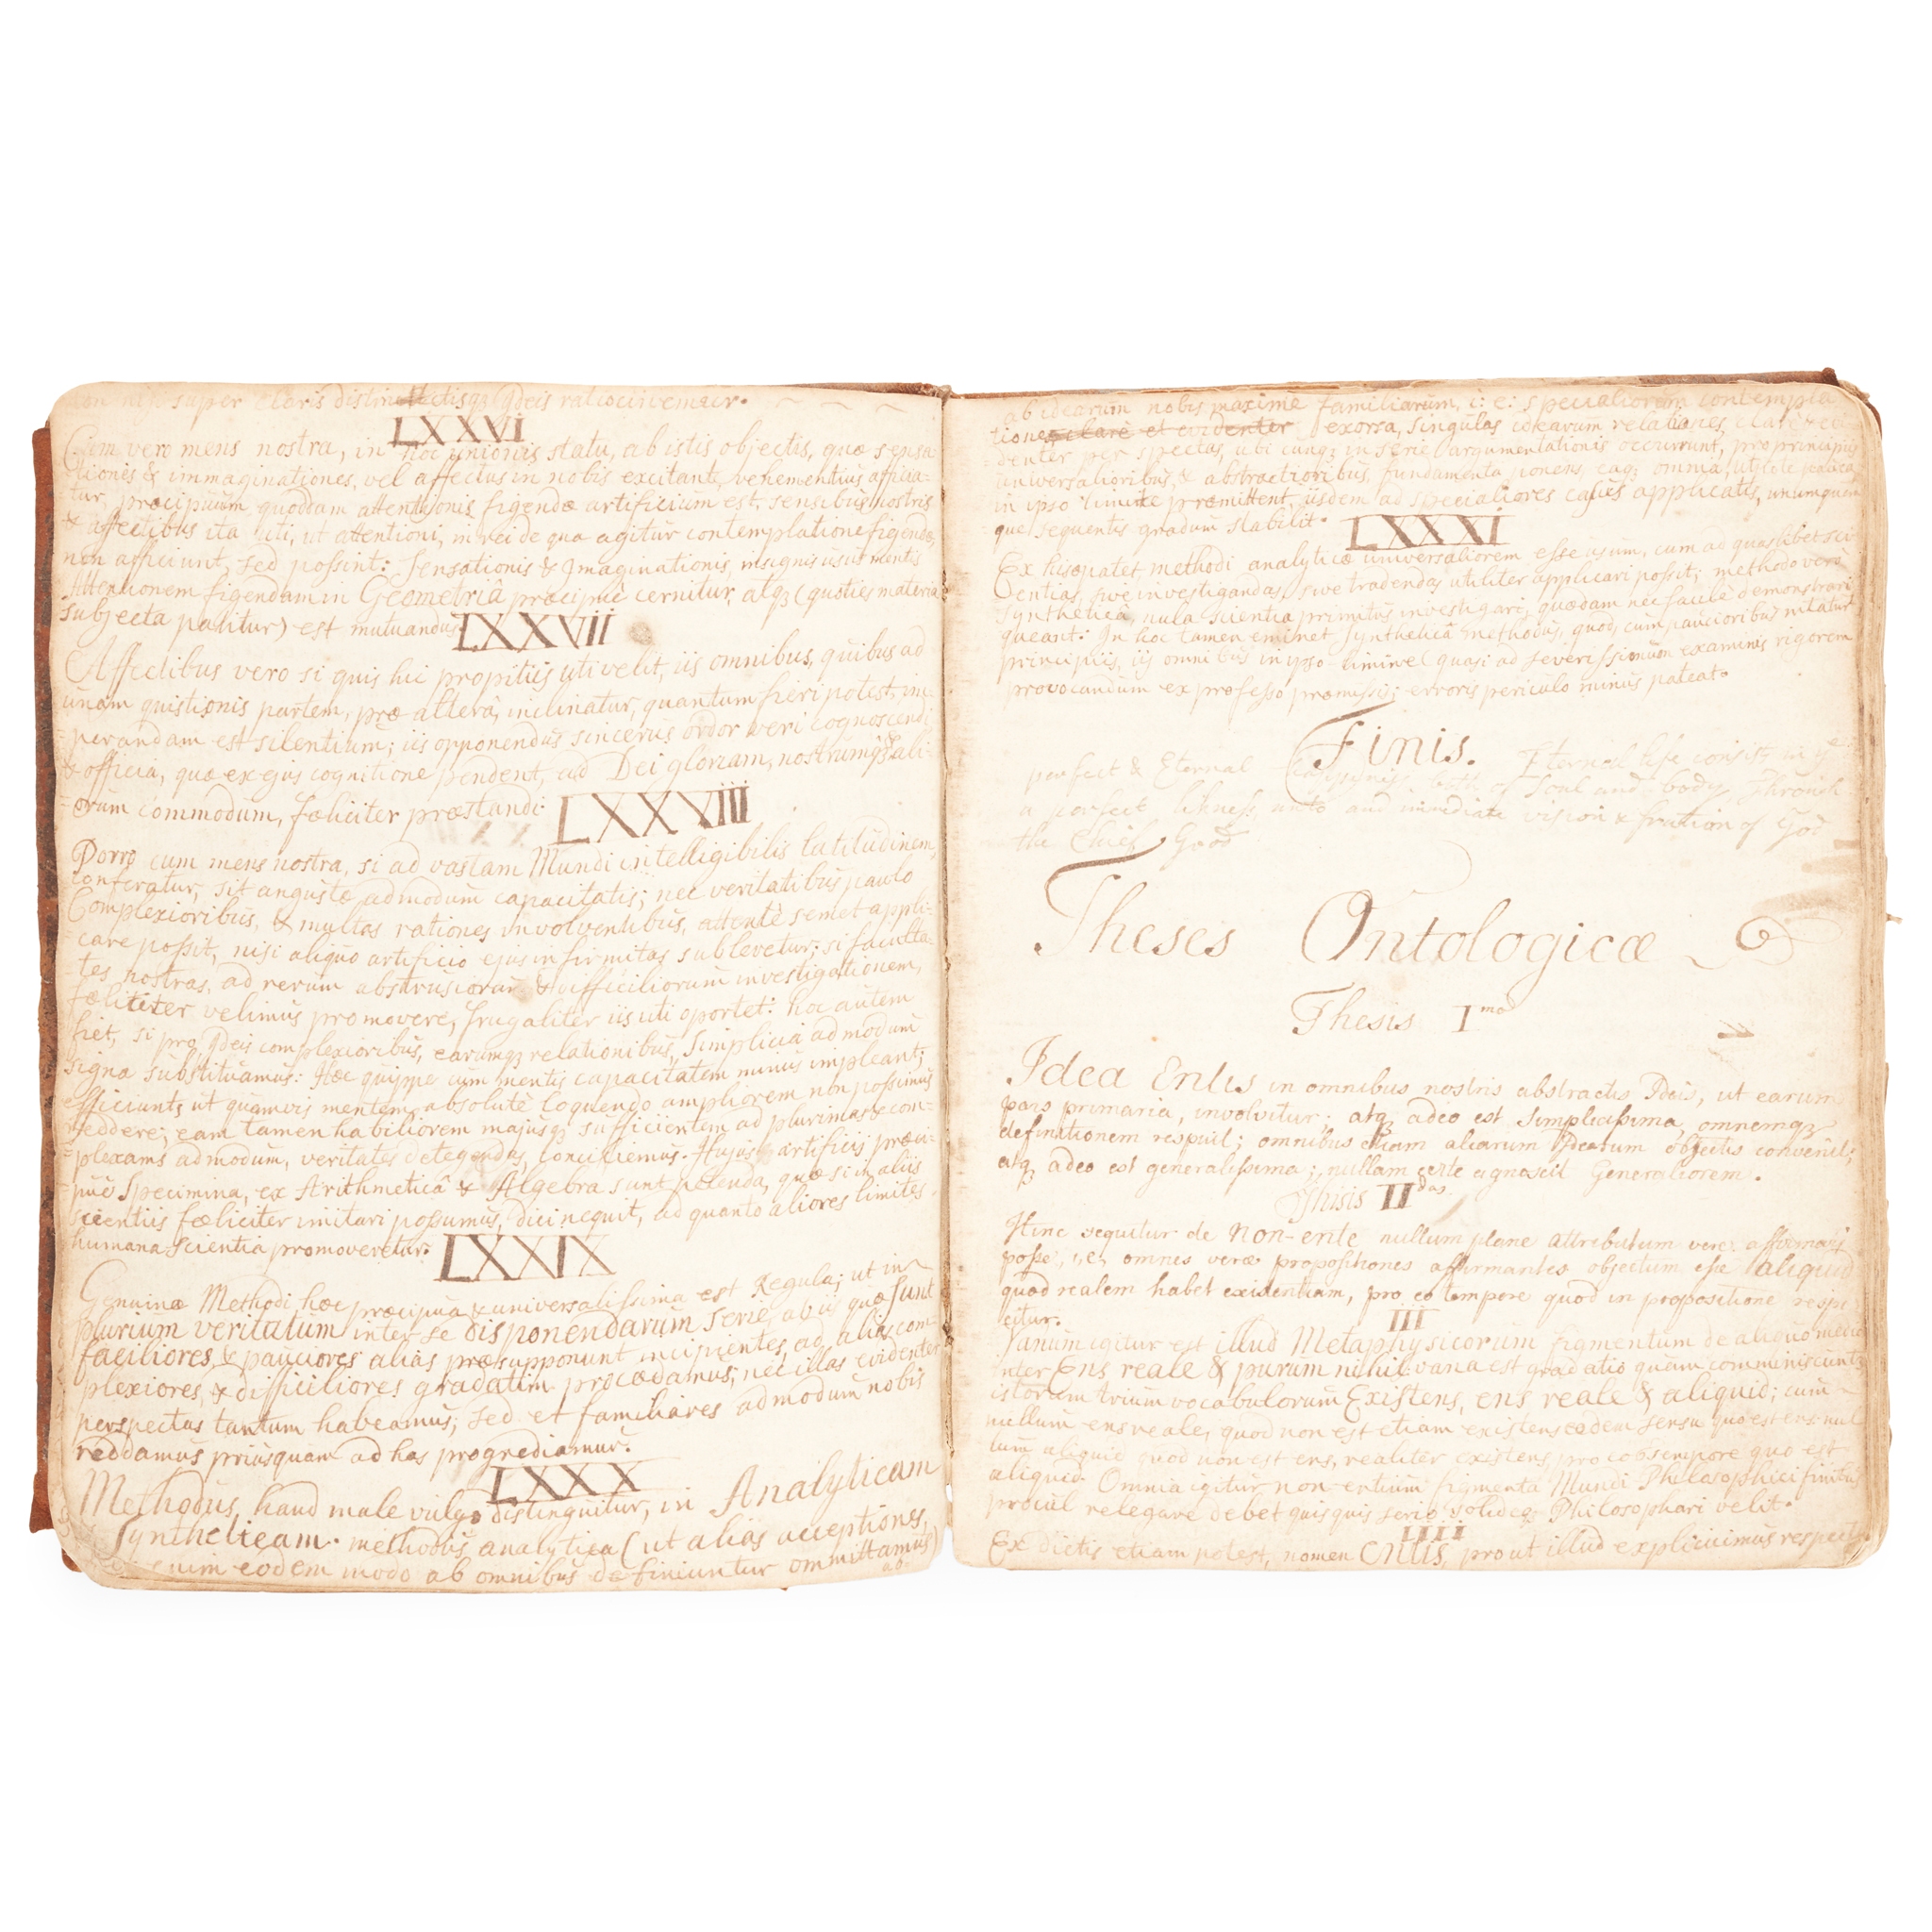 super claris distinctisqꝫ Ideis ratiocinemur.
LXXVI
Cum vero mens nostra, in hoc unionis statu, ab istis objectis, quæ sensa-
tiones & immaginationes, vel affectus in nobis excitant, vehementius afficia-
tur, præcipuum quoddam attentionis figendæ artificium est, sensibus nostris
& affectibus ita uti, ut attentioni, in rei de qua agitur contemplatione figendæ,
non officiunt, sed possint: Sensationis & Imaginationis, insignis usus mentis
Attentionem figendam in Geometriâ præcipue cernitur, atqꝫ (quoties materia
subjecta patitur) est mutuandus.
LXXVII
Affectibus vero si quis hic propitiis uti velit, iis omnibus, quibus ad
unam quistionis partem, præ alterâ, inclinatur, quantum fieri potest, im-
perandam est silentium; iis opponendus sincerus ordor veri cognoscendi
& officia, quæ ex ejus cognitione pendent, ad Dei gloriam, nostrumqꝫ & ali-
orum commodum, fæliciter præstandi.
LXXVIII
Porro cum mens nostra, si ad vastam Mundi intelligibilis latitudinem,
conferatur, sit angustæ admodum capacitatis; nec veritatibus paulo
Complexioribus, & multas rationes involventibus, attentè semet appli-
care possit, nisi aliquo artificio ejus infirmitas sublevetur; si faculta-
tes nostras, ad rerum abstrusiorum & difficiliorum investigationem,
fæliciter velimus promovere, frugaliter iis uti oportet: hoc autem
fiet, si pro Ideis complexioribus, earumqꝫ relationibus, simplicia admodum
signa substituamus: Hæc quippe cum mentis capacitatem minus impleant;
efficiunt, ut quamvis mentem absolutè loquendo ampliorem non possimus
reddere; eam tamen habiliorem majusqꝫ sufficientem ad plurimas & com-
plexams admodum, veritates detegendas, conciliemus. Hujus artificii præci-
puè Specimina, ex Arithmeticâ & Algebra sunt petenda, quæ si in aliis
scientiis fæliciter imitari possumus, dici nequit, ad quanto aliores limites
humana scientia promoveretur.
LXXIX
Genuinæ Methodi hæc præcipua & universalissima est Regula; ut in
plurium veritatum inter se disponendarum serie, ab iis quæ sunt
faciliores, & pauciores alias præsupponunt incipientes, ad alias com-
plexiores, & difficiliores gradatim procædamus; nec illas evidenter
perspectas tantum habeamus; sed et familiares admodum nobis
reddamus priusquam ad has progrediamur.
LXXX
Methodus, haud male vulgo distinguitur, in Analyticam
Syntheticam. methodus analytica (ut alias acceptiones,
enim eodem modo ab omnibus definiuntur ommittamus)
ab-
ab idearum nobis maxime familiarum, i: e: specialiorum contempla
tione, clarè et evidenter exorsa, singulas idearum relationes, clarè & evi
denter perspectas, ubi cunqꝫ in serie argumentationis occurrunt, pro principiis
universalioribus, & abstractioribus, fundamenta ponens eaqꝫ omnia, utpote pauca
in ipso limite præmittent, iisdem ad specialiores casus applicatis, unumquem
que sequentis gradum stabilit.
LXXXI
Ex his patet, methodi analyticæ universaliorem esse usum, cum ad quaslibet sci
entias, sive investigandas, sive tradendas utiliter applicari possit; methodo vero
syntheticâ, nula scientia primitus investigari, quædam nec facile demonstrari
queant: In hoc tamen eminet Synthetica methodus, quod, cum paucioribus nitatur
principiis, iis omnibus in ipso limine (quasi ad severissimum examinis rigorem
provocandum ex professo præmissis; erroris periculo minus pateat.
Finis.
perfect & Eternal happyniss both of Soul and body Through
Eternal life consists in ye
a perfect likness unto and immediate vision & fruition of God
the Chief Good
Theses Ontologicæ
Thesis Imo
Idea Entis in omnibus nostris abstractis Ideis, ut earum
pars primaria, involvitur; atqꝫ adeo est simplicissima, omnemqꝫ
definitionem respuit; omnibus etiam aliarum Idearum objectis convenit;
atqꝫ adeo est generalissima; nullam certe agnoscit Generaliorem.
Thisis IIdas
Hinc sequitur de non-ente nullum plane attributum vere affirmari
posse, i, e, omnes veræ propositiones affirmantes objectum esse aliquid
quod realem habet existentiam, pro eo tempore quod in propositione respi-
citur.
III
Vanum igitur est illud Metaphysicorum figmentum de aliquo medio
inter Ens reale & purum nihil: vana est gradatio quam comminiscuntr
istorum trium vocabulorum Existens, ens reale & aliquid; cum
nullum ens reale, quod non est etiam existens eodem sensu quo est ens: nul
lum aliquid quod non est ens, realiter existens, pro eo tempore quo est
aliquid. Omnia igitur non-entium figmenta Mundi Philosophici finibus
procul relegare debet quisquis serio solideqꝫ Philosophari velit.
IIII
Ex dictis etiam potest, nomen Entis, prout illud explicuimus respectu